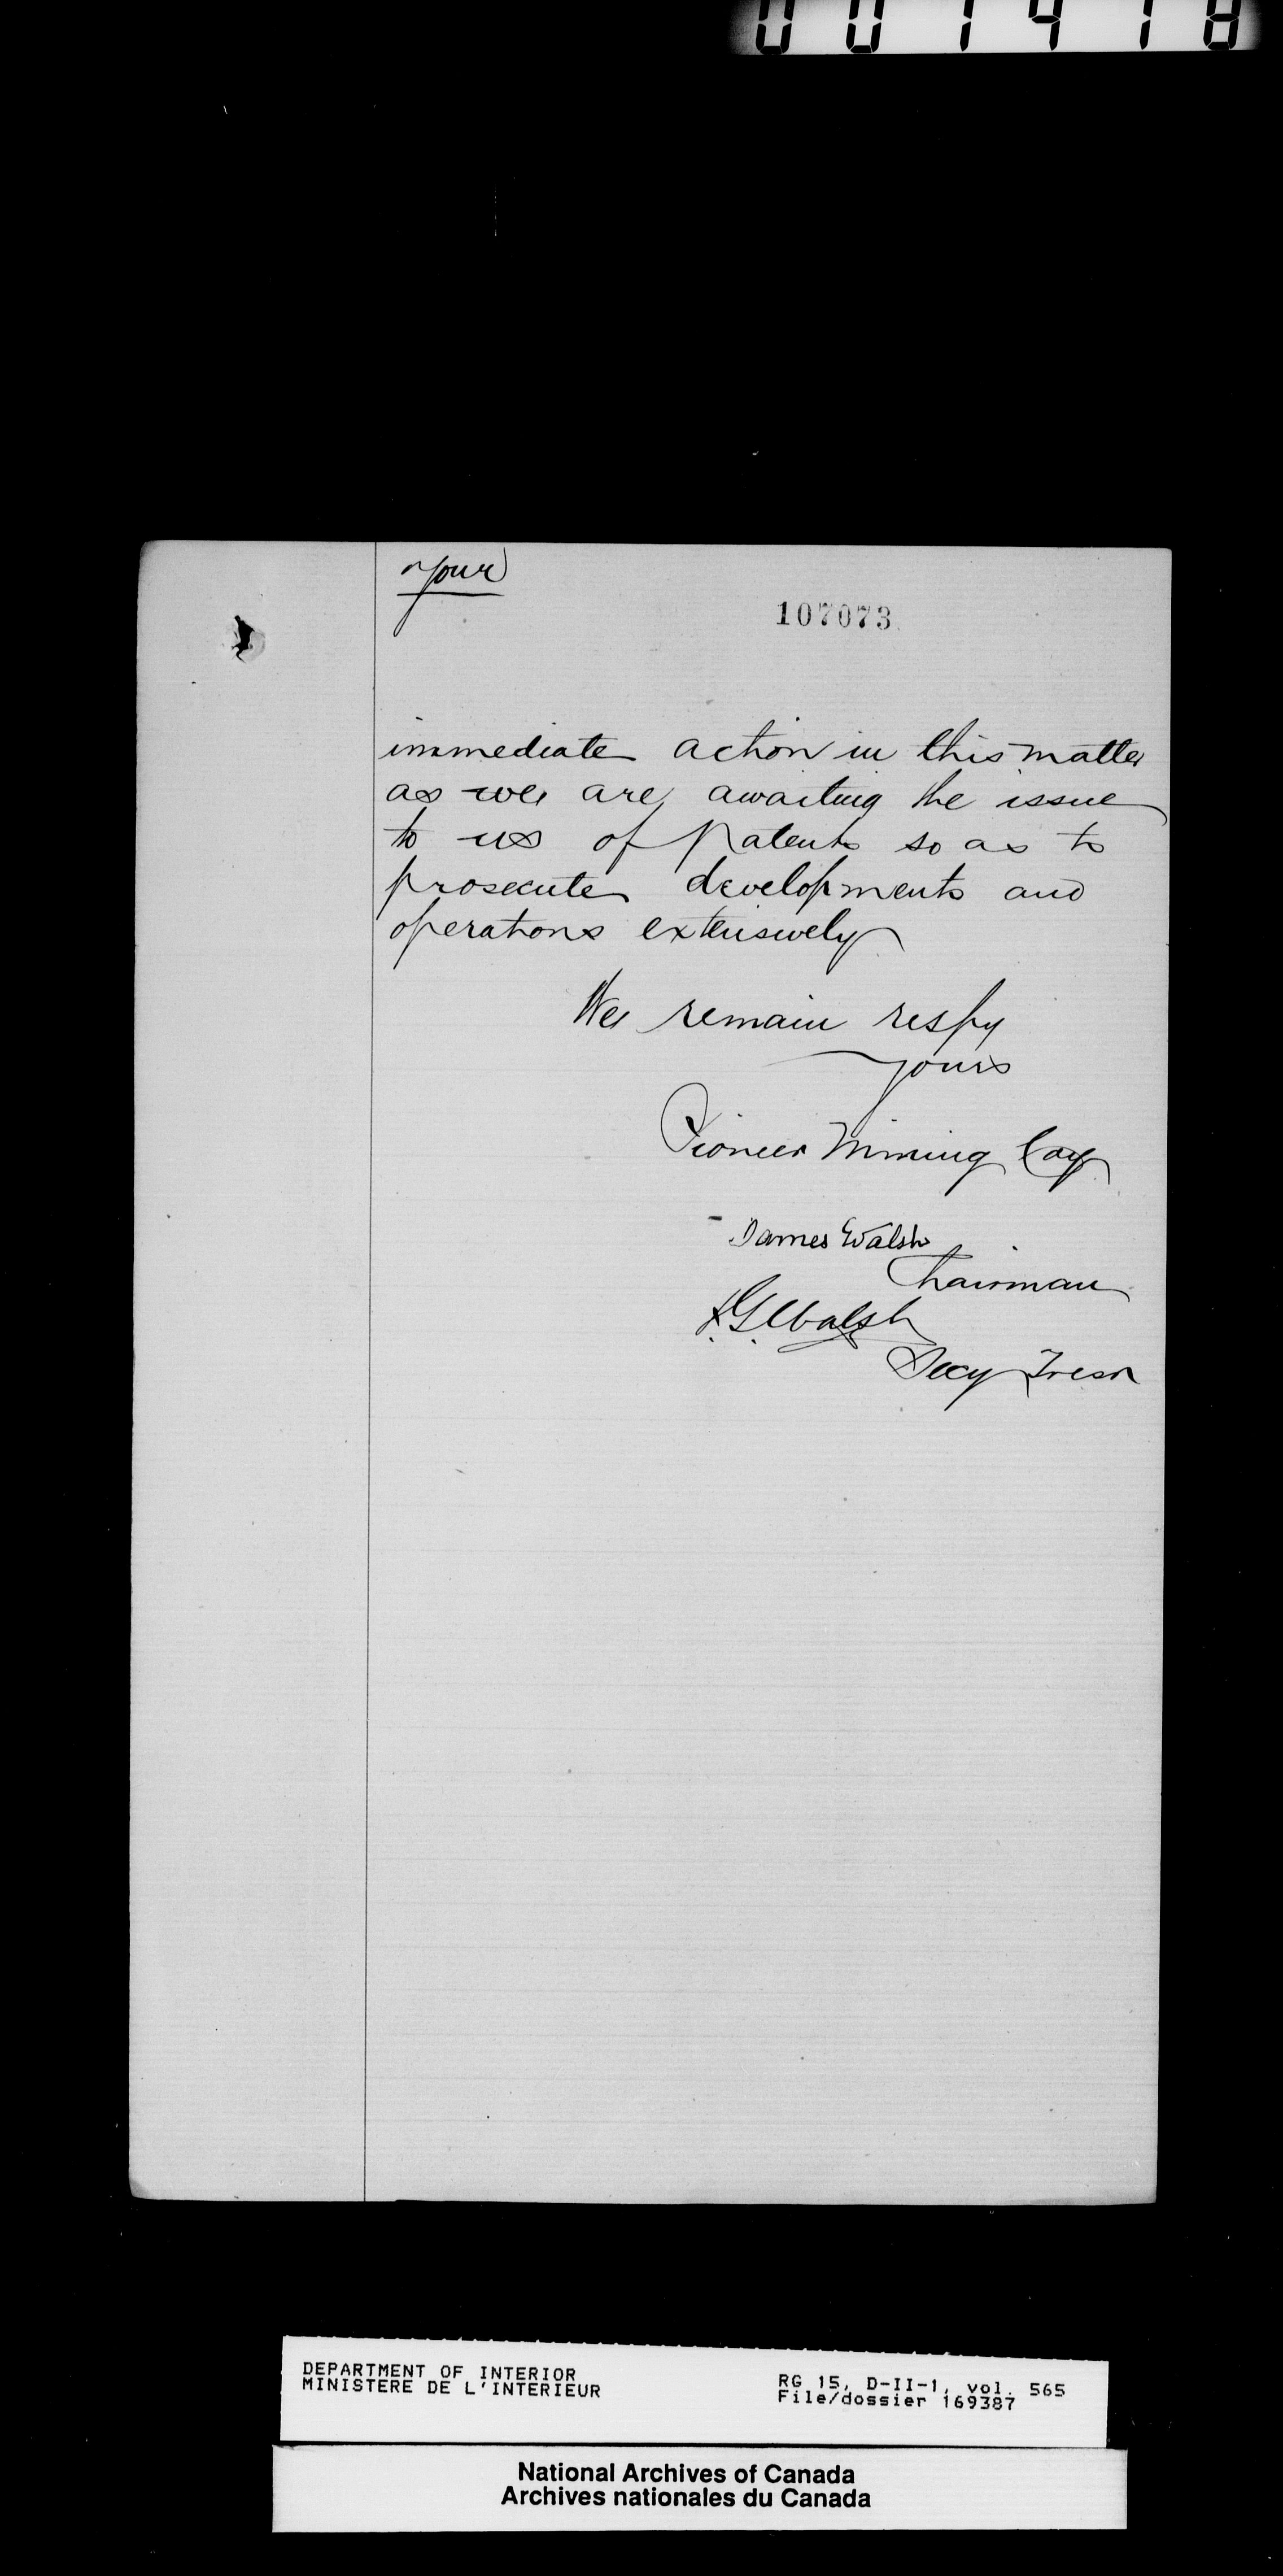 001418
your
107073
immediate action in this matter
as we are awaiting the issue
to us of patents so as to
prosecute developments and
operations extensively
We remain respy
yours
Pioneer Mining Coy
James Walsh
Chairman
Walsh
Secy Tresr
DEPARTMENT OF INTERIOR
MINISTERE DE L'INTERIEUR
RG 15, D-II-1, vol. 565
File/dossier 169387
National Archives of Canada
Archives nationales du Canada